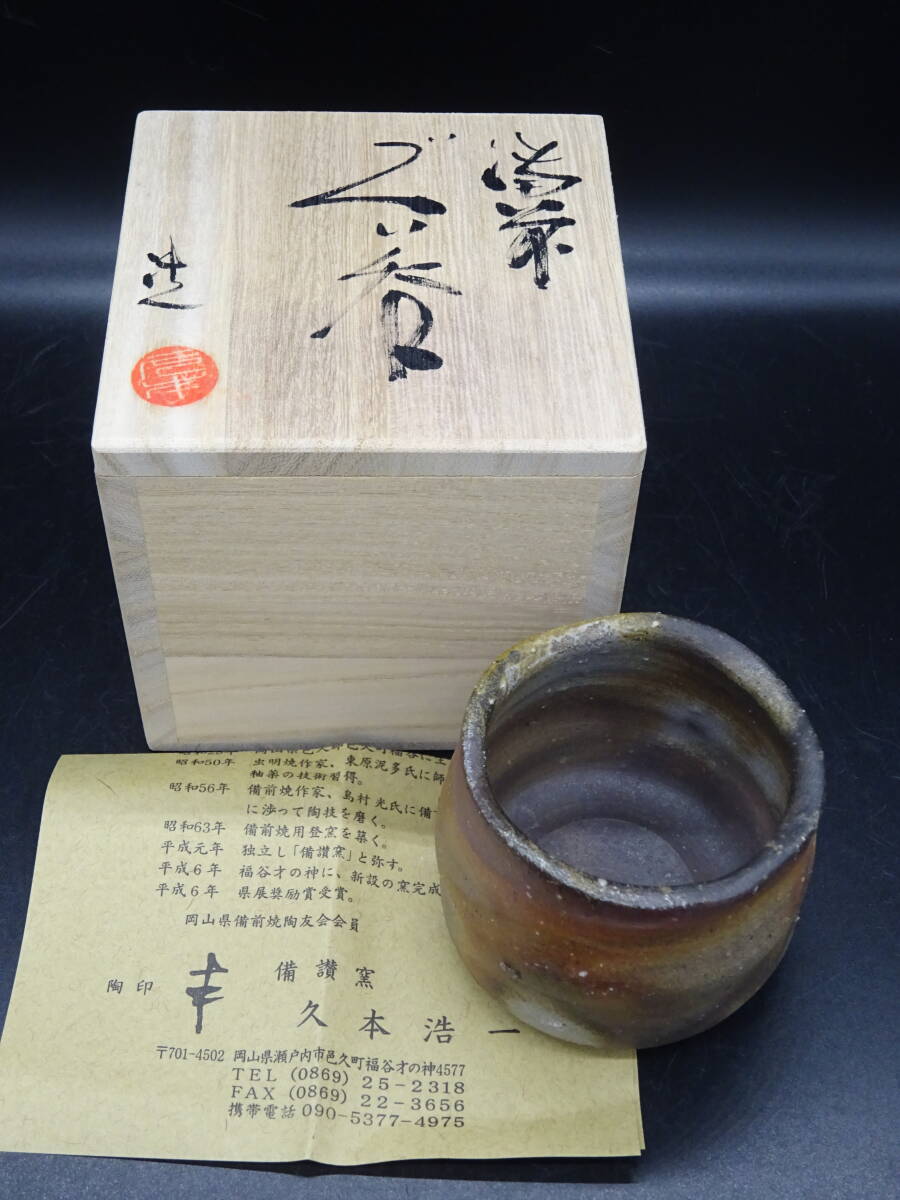 備前
ぐい呑
造
昭和50年 虫明焼作家、東原泥多氏に師
釉薬の技術習得。
昭和56年 備前焼作家、島村光氏に備
に渉って陶技を磨く。
昭和63年 備前焼用登窯を築く。
平成元年 独立し「備讃窯」と弥す。
平成6年 福谷才の神に、新設の窯完成
平成6年 県展奨励賞受賞。
岡山県備前焼陶友会会員
陶印
備讃窯
久本浩一
〒701-4502 岡山県瀬戸内市邑久町福谷才の神4577
TEL (0869) 25-2318
FAX (0869) 22-3656
携帯電話 090-5377-4975